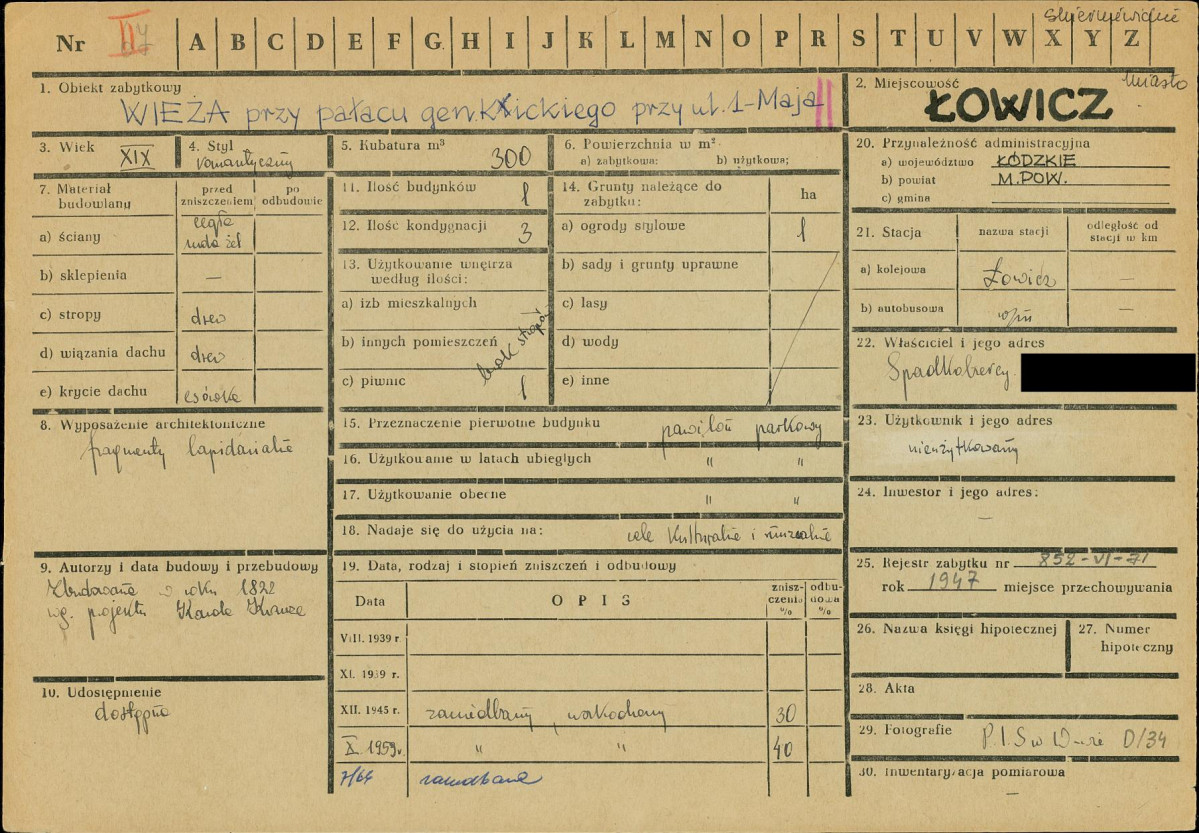 Skierniewickie
Nr II A B C D E F G H I J K L M N O P R S T U V W X Y Z
1. Obiekt zabytkowy
WIEŻA przy pałacu gen. Klickiego przy ul. 1-Maja
2. Miejscowość
Miasto
ŁOWICZ
3. Wiek XIX
4. Styl romantyczny
5. Kubatura m³ 300
6. Powierzchnia w m²
a) zabytkowa: b) użytkowa;
7. Materiał budowlany
przed zniszczeniem
po odbudowie
a) ściany cegła ruda żel
b) sklepienia —
c) stropy drew
d) wiązania dachu drew
e) krycie dachu
8. Wyposażenie architektoniczne
fragmenty lapidarialne
9. Autorzy i data budowy i przebudowy
Zbudowana w roku 1822
wg. projektu Karola Krauze
10. Udostępnienie
dostępna
11. Ilość budynków 1
12. Ilość kondygnacji 3
13. Użytkowanie wnętrza
według ilości:
a) izb mieszkalnych
b) innych pomieszczeń
brak stropów
c) piwnic 1
14. Grunty należące do
zabytku:
ha
a) ogrody stylowe 1
b) sady i grunty uprawne
c) lasy
d) wody
e) inne
15. Przeznaczenie pierwotne budynku pawilon parkowy
16. Użytkowanie w latach ubiegłych " "
17. Użytkowanie obecne " "
18. Nadaje się do użycia na: cele kulturalne i muzealne
19. Data, rodzaj i stopień zniszczeń i odbudowy
Data
OPIS
zniszczenia %
odbudowa %
VIII. 1939 r.
XI. 1939 r.
XII. 1945 r. zaniedbany, 30
X 1959 r. " " 40
7/64 zaniedbana
20. Przynależność administracyjna
a) województwo ŁÓDZKIE
b) powiat M.POW.
c) gmina
21. Stacja
nazwa stacji
odległość od
stacji w km
a) kolejowa Łowicz —
b) autobusowa —
22. Właściciel i jego adres
Spadkobiercy
23. Użytkownik i jego adres
nieużytkowany
24. Inwestor i jego adres:
—
25. Rejestr zabytku nr 852-VI-71
rok 1947 miejsce przechowywania
26. Nazwa księgi hipotecznej
27. Numer
hipoteczny
28. Akta
29. Fotografie P.I.S w W-wie D/34
30. Inwentaryzacja pomiarowa
—